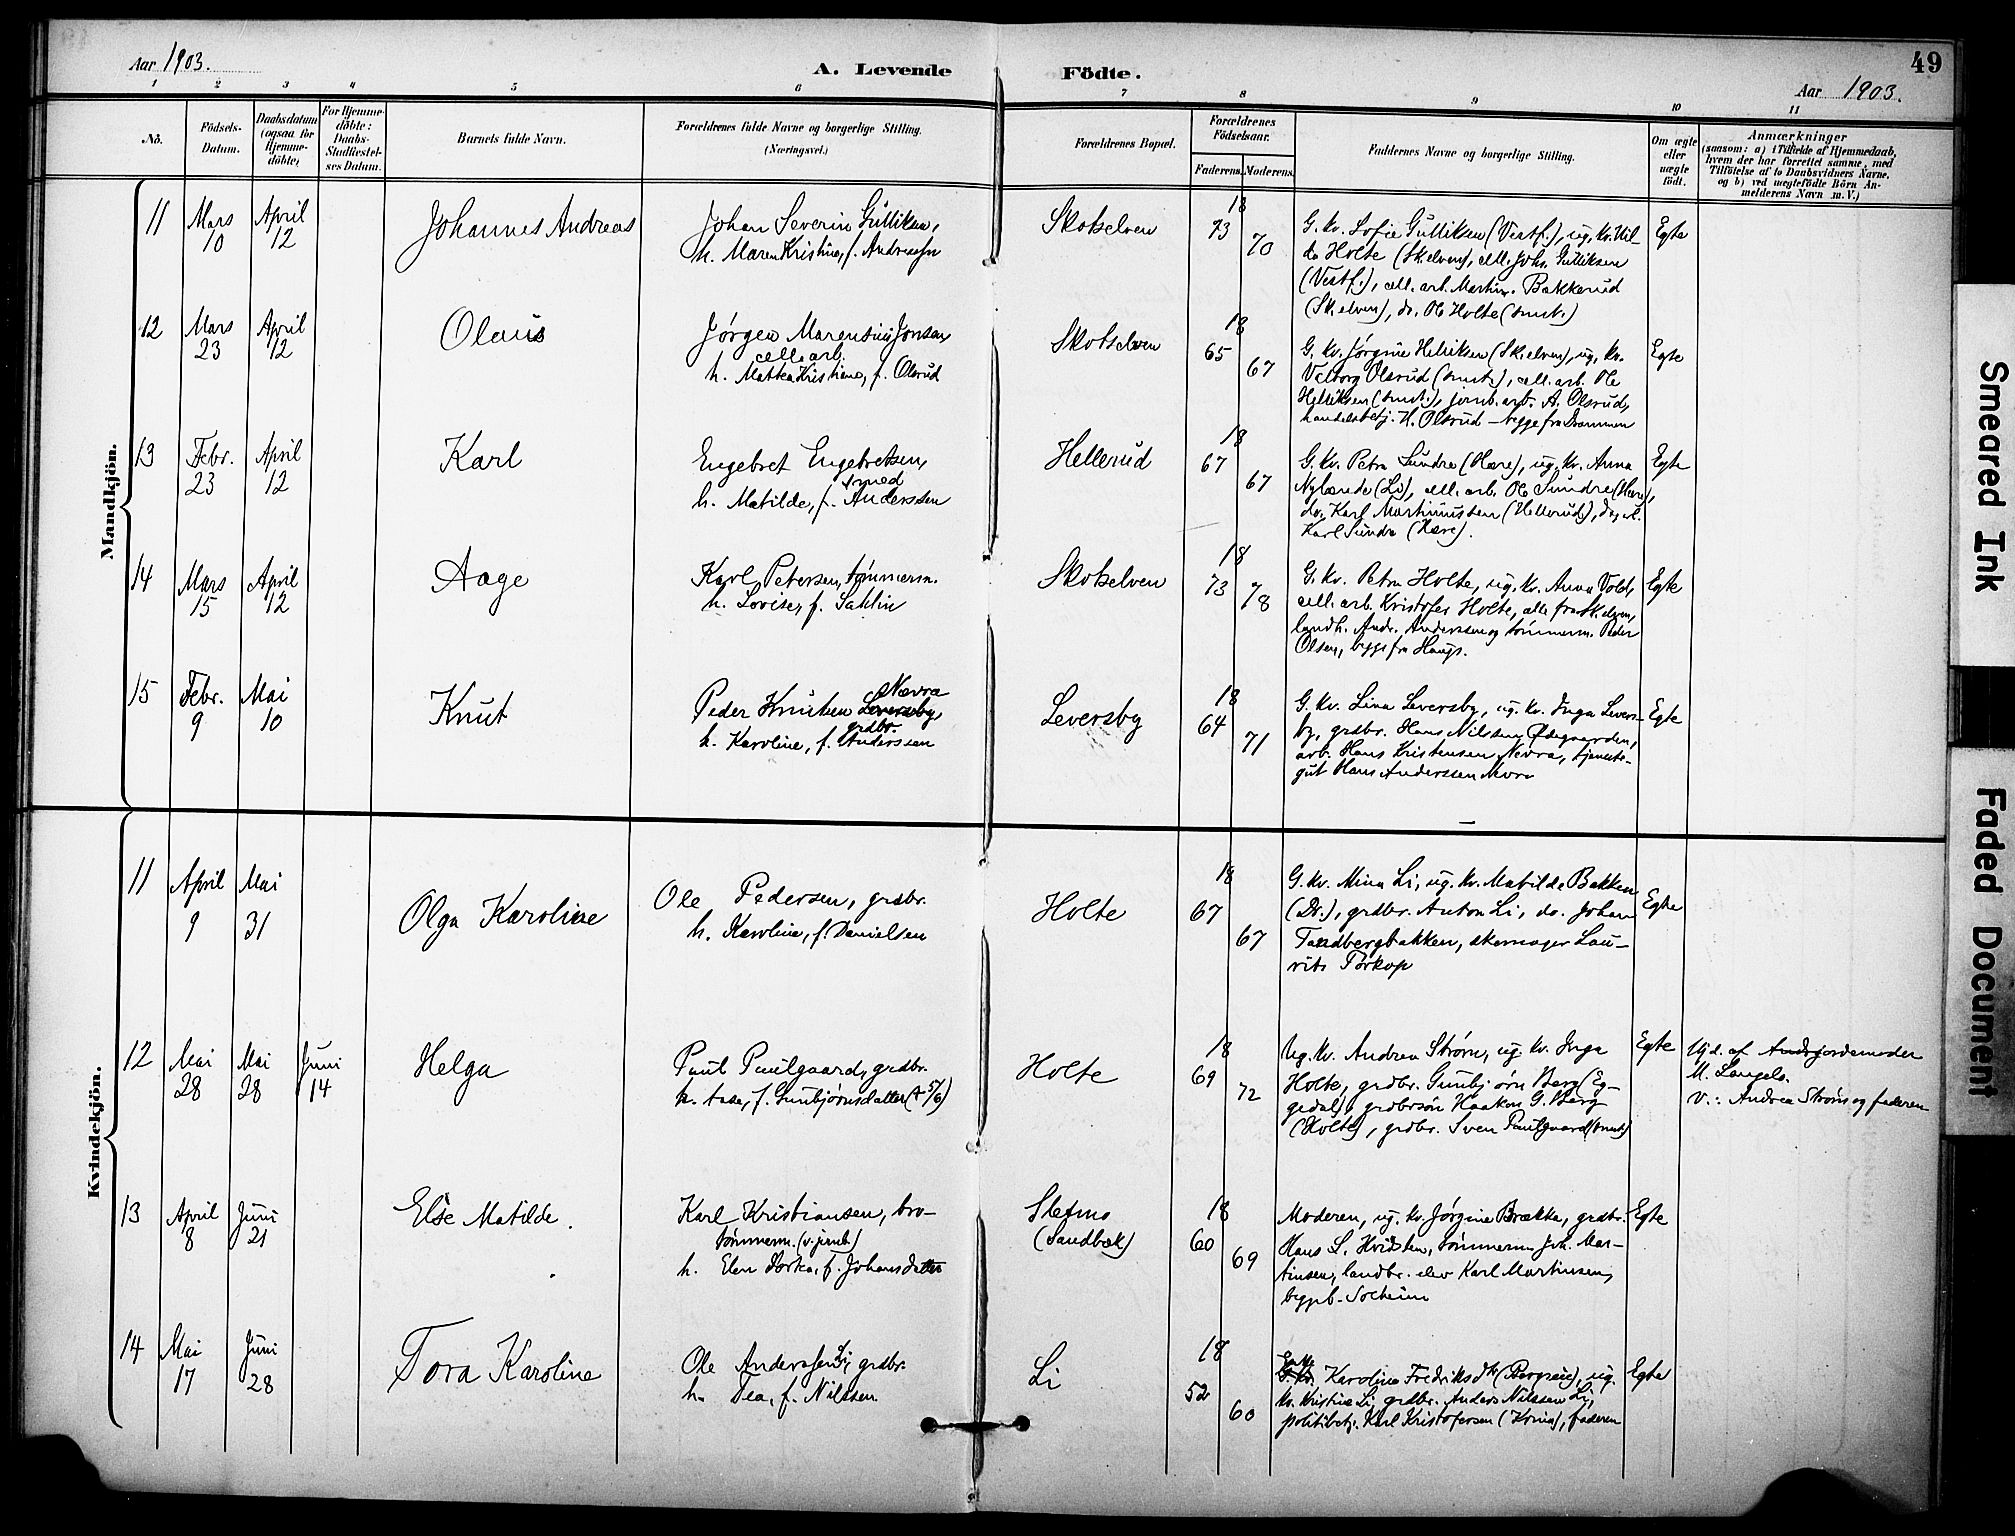 49
Aar 1903.
A. Levende Födte.
Aar 1903.
1 2 3 4 5 6 7 8 9 10 11
Nö.
Födsels-
Datum.
Daabsdatum
(ogsaa for
Hjemme-
döbte)
For Hjemme-
döbte:
Daabs-
Stadfæstel-
ses Datum.
Barnets fulde Navn.
Forældrenes fulde Navne og borgerlige Stilling.
(Næringsvei.)
Forældrenes Bopæl.
Forældrenes
Födselsaar.
Faderens. Moderens.
Faddernes Navne og borgerlige Stilling.
Om ægte
eller
uægte
födt.
Anmærkninger
(saasom: a) i Tilfælde af Hjemmedaab,
hvem der har forrettet samme, med
Tilföielse af to Daabsvidners Navne,
og b) ved uægtefödte Börn An-
melderens Navn m. V.)
Mandkjön.
11
Mars
10
April
12
Johannes Andreas
Johan Severin Gulliksen,
h. Maren Kristine, f. Andreassen
Skotselven
18
73
70
G. kv. Sofie Gulliksen (Vestf.), ug. kv. Hil-
da Holte (Sk.elven), cell. Johs. Gulliksen
(Vestf.), cell. arb. Martin Bakkerud
(Sk.elven), do. Ole Holte (smst.)
Egte
12
Mars
23
April
12
Olaus
Jørgen Marensius Jonsen
cell. arb.
h. Mathea Kristiane, f. Olsrud
Skotselven
18
65
67
G. kv. Jørgine Helliksen (Sk.elven), ug. kv.
Valborg Olsrud (smst.), cell. arb. Ole
Helliksen (smst.), jernb. arb. A. Olsrud,
handelsbetj. H. Olsrud – begge fra Drammen
Egte
13
Febr.
23
April
12
Karl
Engebret Engebretsen,
smed
h. Matilde, f. Anderssen
Hellerud
18
67
67
G. kv. Petra Sundre (Hære), ug. kv. Anna
Nylænde (Li), cell. arb. Ole Sundre (Hære),
do. Karl Martinussen (Hellerud), do.
Karl Sundre (Hære).
Egte
14
Mars
15
April
12
Aage
Karl Petersen, tømmerm.
h. Lovise, f. Sahlin
Skotselven
18
73
78
G. kv. Petra Holte, ug. kv. Anna Vold,
cell. arb. Kristofer Holte, alle fra Sk.elven,
landh. Andr. Anderssen og tømmerm. Peder
Olsen, begge fra Haugs.
Egte
15
Febr.
9
Mai
10
Knut
Nævra
Peder Knutsen Leversby,
grdbr.
h. Karoline, f. Anderssen
Leversby
18
64
71
G. kv. Lina Leversby, ug. kv. Inga Levers-
by, grdbr. Hans Nilssen Ødegaarden,
arb. Hans Kristensen Nævra, tjeneste-
gut Hans Anderssen Nævra
Egte
Kvindekjön.
11
April
9
Mai
31
Olga Karoline
Ole Pedersen, grdbr.
h. Karoline, f. Danielsen
Holte
18
67
67
G. kv. Mina Li, ug. kv. Matilde Bakken
(Dr.), grdbr. Anton Li, do. Johan
Tandbergbakken, skomager Lau-
rits Torkop
Egte
12
Mai
28
Mai
28
Juni
14
Helga
Paul Paulgaard, grdbr.
h. Aase, f. Gunbjørnsdatter († 5/6)
Holte
18
69
72
Ug. kv. Andrea Strøm, ug. kv. Inga
Holte, grdbr. Gunbjørn Berg (Eg-
gedal), grdbrsøn Haakon G. Berg
(Holte), grdbr. Sven Paulgaard (smst.)
Egte
Hjd. af jordemoder
M. Langelo.
V.: Andrea Strøm og faderen
13
April
8
Juni
21
Else Matilde.
Karl Kristiansen, bro-
tømmerm. (v. jernb.)
h. Elen Dorthea, f. Johansdatter
Sletmo
(Sandbæk)
18
60
69
Moderen, ug. kv. Jørgine Brække, grdbr.
Hans L. Hvidsten, tømmerm. Joh. Mar-
tinsen, landbr. elev Karl Martinsen,
Solheim
Egte
14
Mai
17
Juni
28
Tora Karoline
Ole Anderssen Li, grdbr.
h. Tea, f. Nilssen
Li
18
52
60
Enke
G. kv. Karoline Fredriksdtr, ug.
kv. Kristine Li, grdbr. Anders Nilssen Li,
politibetj. Karl Kristofersen (Kr.nia), faderen
Egte
Smeared Ink
Faded Document